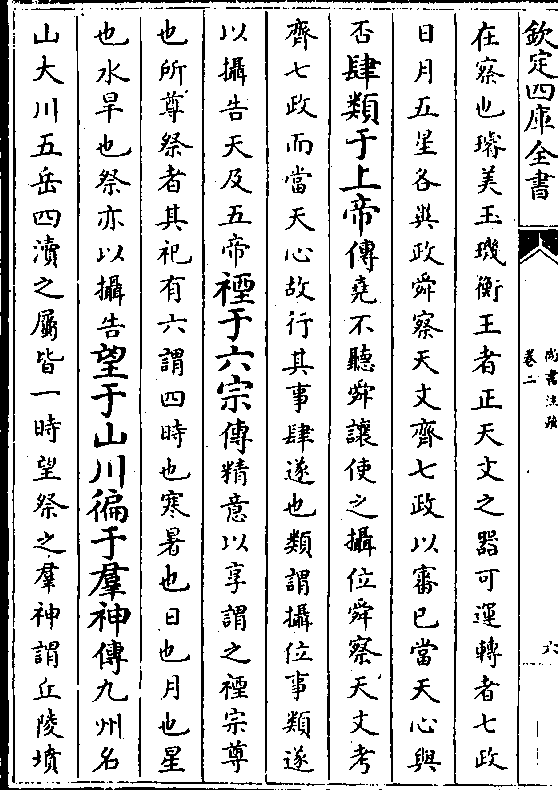 欽定四庫全書
尚書注疏
卷二
六
在察也璿美玉璣衡王者正天文之器可運轉者七政
日月五星各異政舜察天文齊七政以審己當天心與
否肆類于上帝傳堯不聽舜讓使之攝位舜察天文考
齊七政而當天心故行其事肆遂也類謂攝位事類遂
以攝告天及五帝禋于六宗傳精意以享謂之禋宗尊
也所尊祭者其祀有六謂四時也寒暑也日也月也星
也水旱也祭亦以攝告望于山川徧于羣神傳九州名
山大川五岳四瀆之屬皆一時望祭之羣神謂丘陵墳